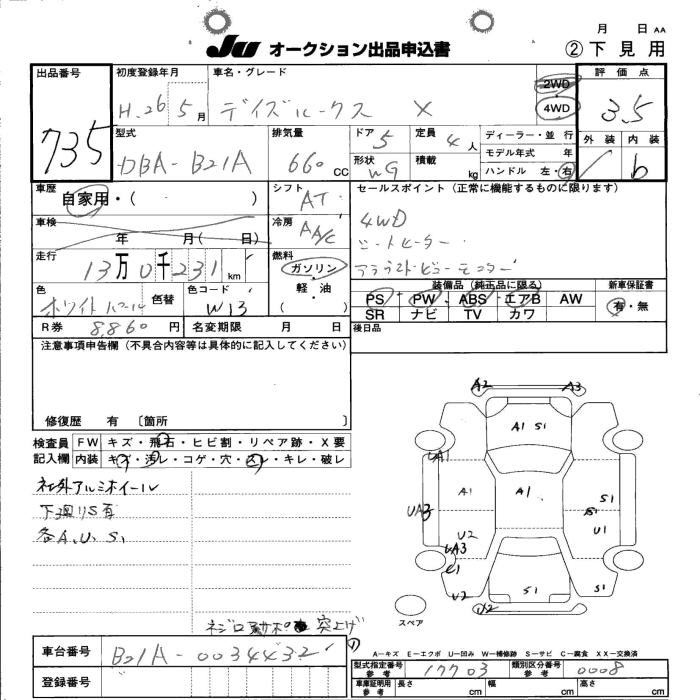 月 日 AA
JU オークション出品申込書 ②下見用
出品番号 初度登録年月 車名・グレード 2WD 4WD 評価点
735 H.26 5月 デイズルークス X 3.5
型式 排気量 ドア 5 定員 4人 ディーラー・並行 外装 内装
DBA-B21A 660CC 形状 WG 積載 kg モデル年式 年 b
ハンドル 左・右
車歴 自家用・( ) シフト AT セールスポイント(正常に機能するものに限ります)
車検 年 月( 日) 冷房 AA/C 4WD
シートヒーター
走行 13万0千231km 燃料 ガソリン・軽・油 ( ) アラウンドビューモニター
色 ホワイトパール 色替 色コード W13 装備品(純正品に限る) 新車保証書
PS PW ABS エアB AW 有・無
SR ナビ TV カワ
R券 8,860円 名変期限 月 日 後日品
注意事項申告欄(不具合内容等は具体的に記入してください)
修復歴 有 〔箇所 〕
検査員 FW キズ・飛石・ヒビ割・リペア跡・X要
記入欄 内装 キズ・汚レ・コゲ・穴・スレ・キレ・破レ
社外アルミホイール
下廻りS有
各A.U.S1
A2 A3
A1 S1
UA1
A1 A1 S1
UA3 S1
U2 U1
UA3
C1
U2 S1 S1
U2
スペア
突上げ
車台番号 B21A-0034432
登録番号
A-キズ E-エクボ U-凹み W-補修跡 S-サビ C-腐食 XX-交換済
型式指定番号 参考 17703 類別区分番号 参考 0008
車庫証明用 参考 長さ cm 幅 cm 高さ cm